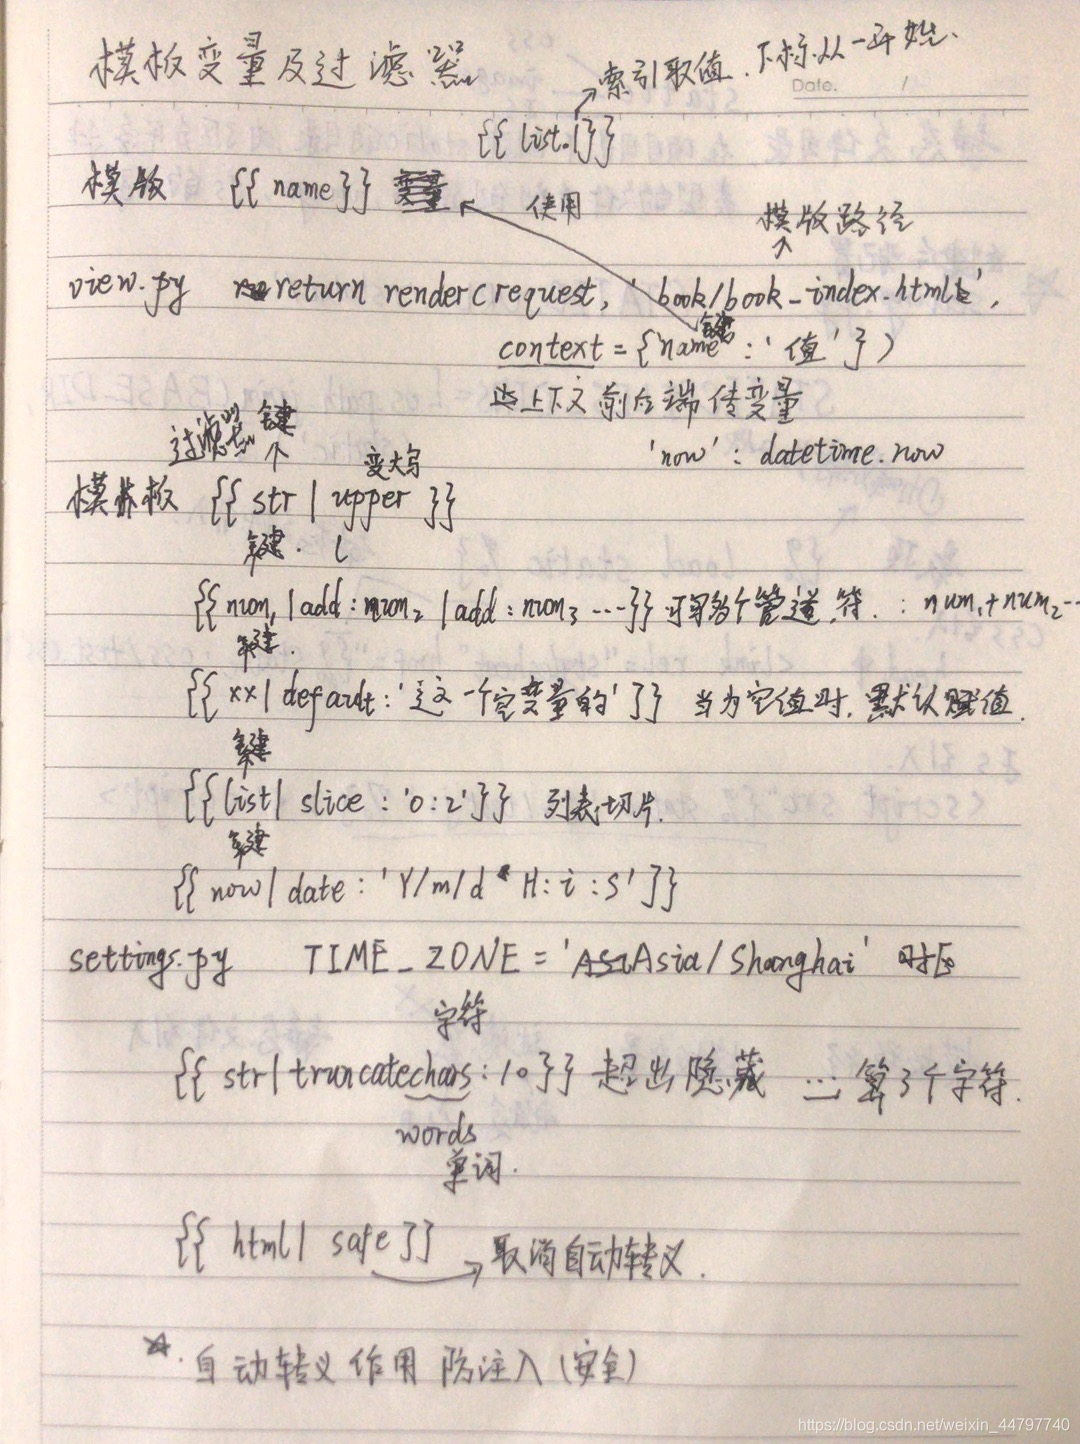 模板变量及过滤器
索引取值. 下标从一开始.
Date. /
{{ list.1}}
模版 {{ name}}
使用
模版路径
view.py return render(request, 'book/book_index.html',
键
context = {'name' : '值' })
上下文 前后端传变量
'now' : datetime.now
过滤器 键
变大写
模板 {{ str | upper }}
键.
{{ num1 | add : num2 | add : num3 ····}} 可写多个管道符. : num1+num2··
键.
{{ xx | default : '这一个空变量的' }} 当为空值时, 默认赋值.
键
{{ list | slice : '0:2' }} 列表切片.
键
{{ now | date : 'Y/m/d H:i:S' }}
settings.py TIME_ZONE = 'Asia/Shanghai' 时区
字符
{{ str | truncatechars : 10 }} 超出隐藏 ... 算3个字符.
words
单词.
{{ html | safe }} 取消自动转义.
☆. 自动转义 作用 防注入 (安全)
https://blog.csdn.net/weixin_44797740